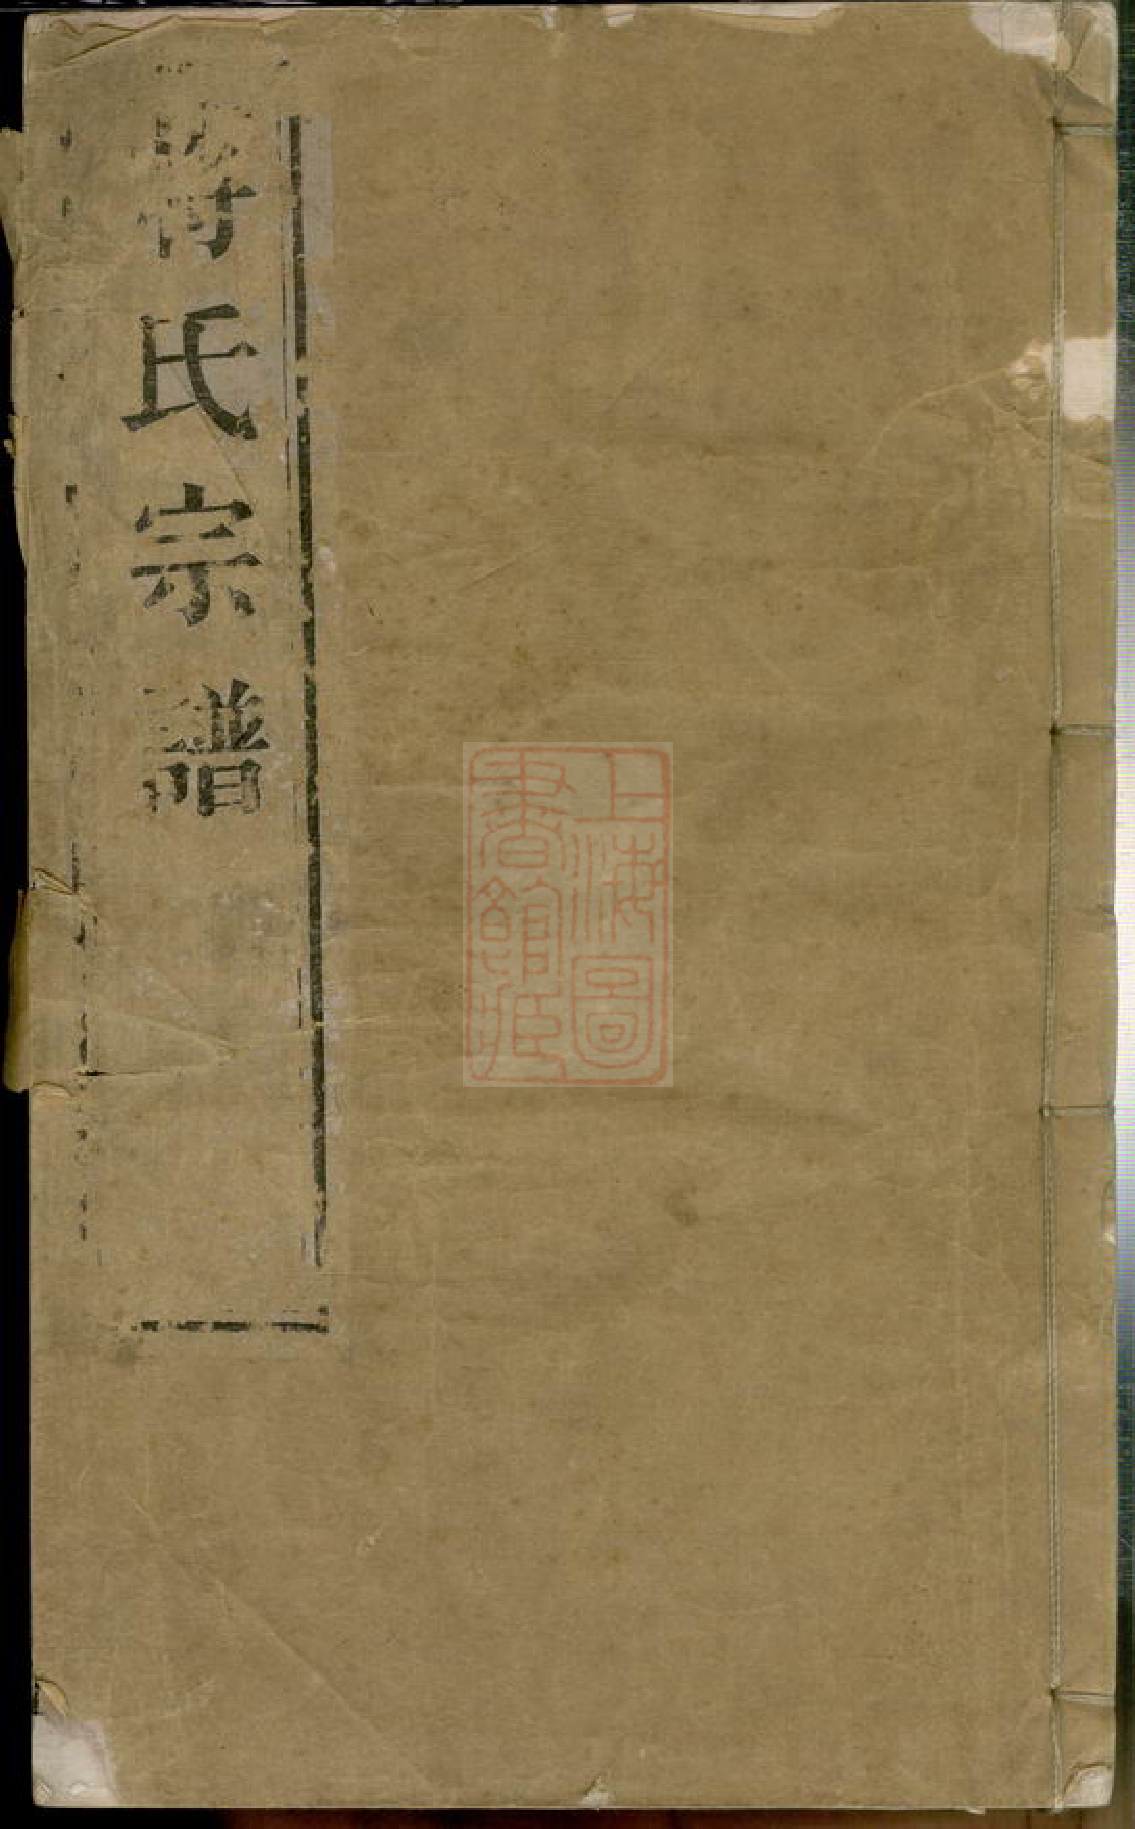 氏宗譜
上海圖
書館藏